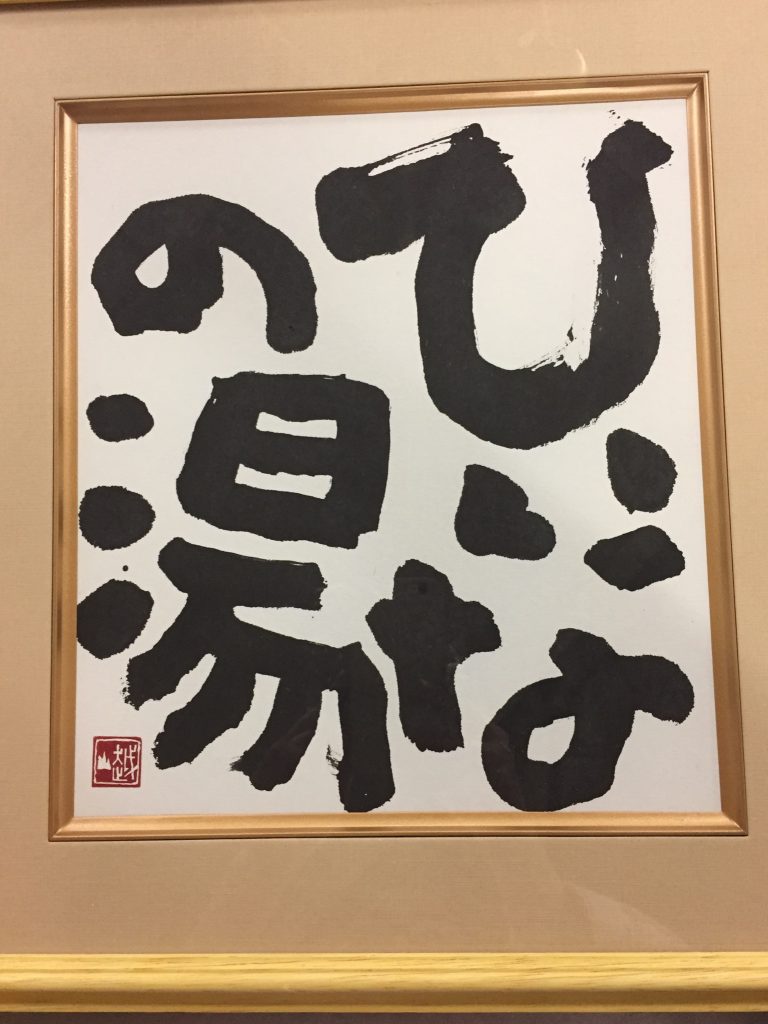 ひいな
の湯
越山